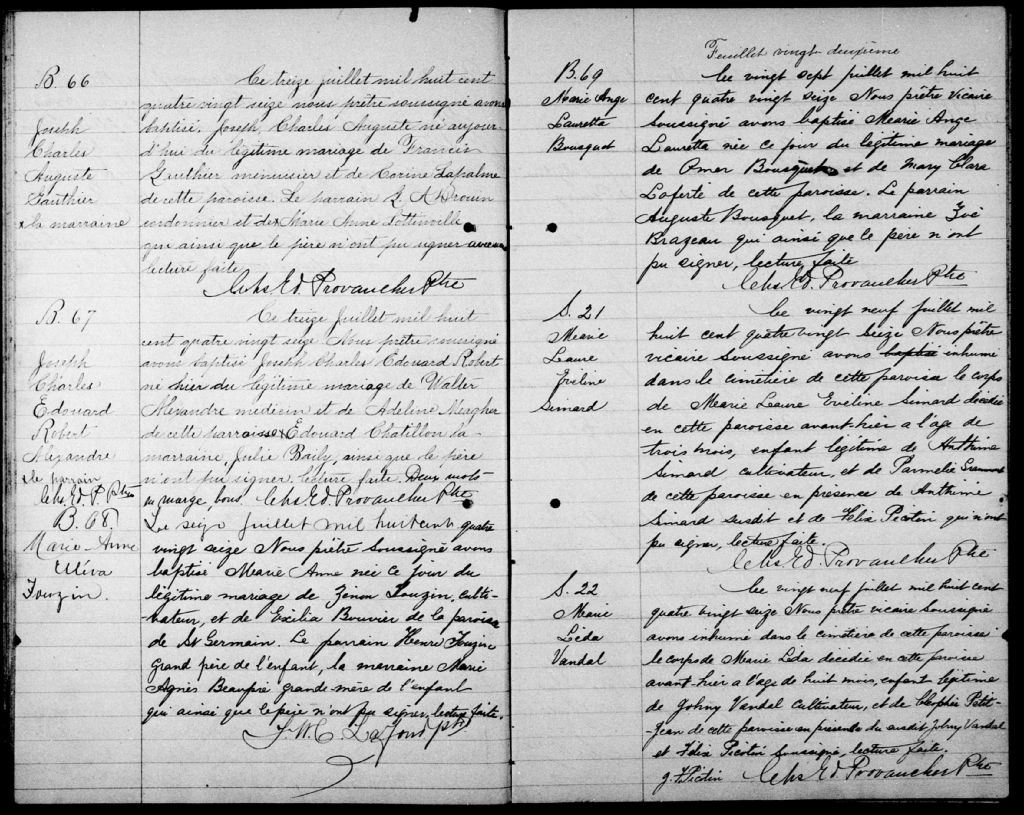 B. 66
Joseph
Charles
Auguste
Gauthier
x la marraine
Ce treize juillet mil huit cent
quatre vingt seize nous prêtre soussigné avons
baptisé, Joseph, Charles Auguste né aujour-
d'hui du légitime mariage de Francis
Gauthier menuisier et de Corine Lapalme
de cette paroisse. Le parrain A Brown
cordonnier et de x Marie Anne
qui ainsi que le père n'ont pu signer avec nous
lecture faite
Chs Ed. Provancher Ptre
B. 67
Joseph
Charles
Edouard
Robert
Alexandre
x le parrain
Chs. Ed. P. Ptre
Ce treize Juillet mil huit
cent quatre vingt seize Nous prêtre soussigné
avons baptisé Joseph Charles Edouard Robert
né hier du légitime mariage de Walter
Alexandre medicin et de Adeline Meagher
de cette parroisse x Edouard Chatillon la
marraine, Julie Baily, ainsi que le père
n'ont pu signer lecture faite. Deux mots
en marge, bons Chs. Ed. Provancher Ptre
B. 68.
Marie-Anne
Uliva
Fouzin.
Le seize Juillet mil huit cent quatre
vingt seize Nous prêtre soussigné avons
baptisé Marie Anne née ce jour du
légitime mariage de Zenon Fouzin, culti-
vateur, et de Exilia Bouvier de la paroisse
de St Germain. Le parrain Henri Fouzin
Grand père de l'enfant, la marraine Marie
Agnès Beaupré grande-mère de l'enfant
qui ainsi que le père n'ont pu signer, lecture faite.
Feuillet vingt-deuxième
B. 69
Marie Ange
Lauretta
Bousquet
Ce vingt sept juillet mil huit
cent quatre vingt seize Nous prêtre vicaire
soussigné avons baptisé Marie Ange
Lauretta née ce jour du légitime mariage
de Omer Bousquet et de Mary Clara
Laferté de cette paroisse. Le parrain
Auguste Bousquet, la marraine
Brazeau qui ainsi que le père n'ont
pu signer, lecture faite
Chs Ed. Provancher Ptre
S. 21
Marie
Laure
Eveline
Simard
Ce vingt neuf juillet mil
huit cent quatre vingt seize Nous prêtre
vicaire soussigné avons baptisé inhumé
dans le cimetière de cette paroisse le corps
de Marie Laure Eveline Simard décédée
en cette paroisse avant hier a l'age de
trois mois, enfant légitime de Anthime
Simard cultivateur, et de Parmelie
de cette paroisse en presence de Anthime
Simard susdit et de Félix Picotin qui n'ont
pu signer, lecture faite.
Chs Ed. Provancher Ptre
S. 22
Marie
Léda
Vandal
Ce vingt neuf juillet mil huit cent
quatre vingt seize Nous prêtre vicaire soussigné
avons inhumé dans le cimetière de cette paroisse
le corps de Marie Léda décédée en cette paroisse
avant-hier a l'age de huit mois, enfant légitime
de Johny Vandal cultivateur, et de Petit-
Jean de cette paroisse en présence du susdit Johny Vandal
et Félix Picotin soussigné, lecture faite.
Chs Ed Provancher Ptre